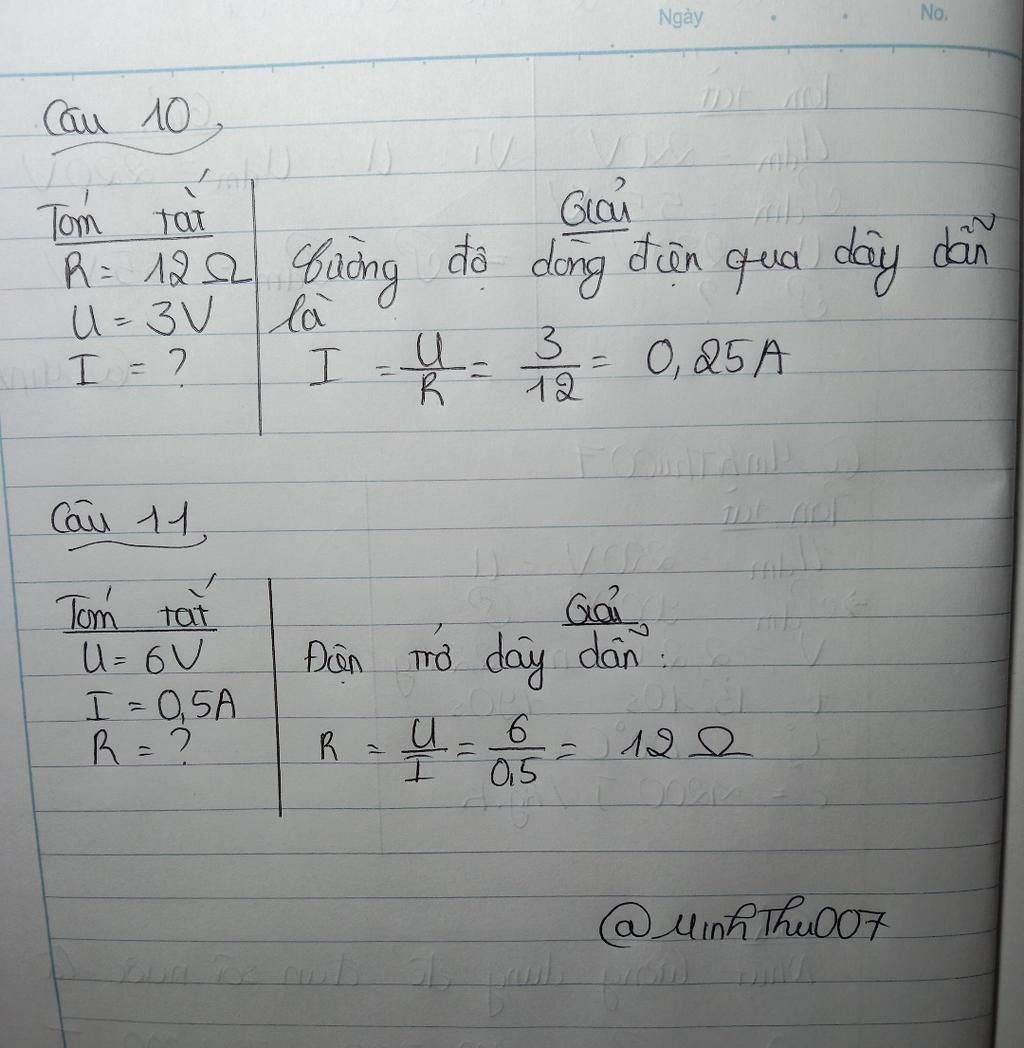 Ngày No.
Câu 10
Tóm tắt
R = 12 Ω
U = 3V
I = ?
Giải
Cường độ dòng điện qua dây dẫn
là
I = U/R = 3/12 = 0,25A
Câu 11
Tóm tắt
U = 6V
I = 0,5A
R = ?
Giải
Điện trở dây dẫn:
R = U/I = 6/0,5 = 12 Ω
@MinhThu007